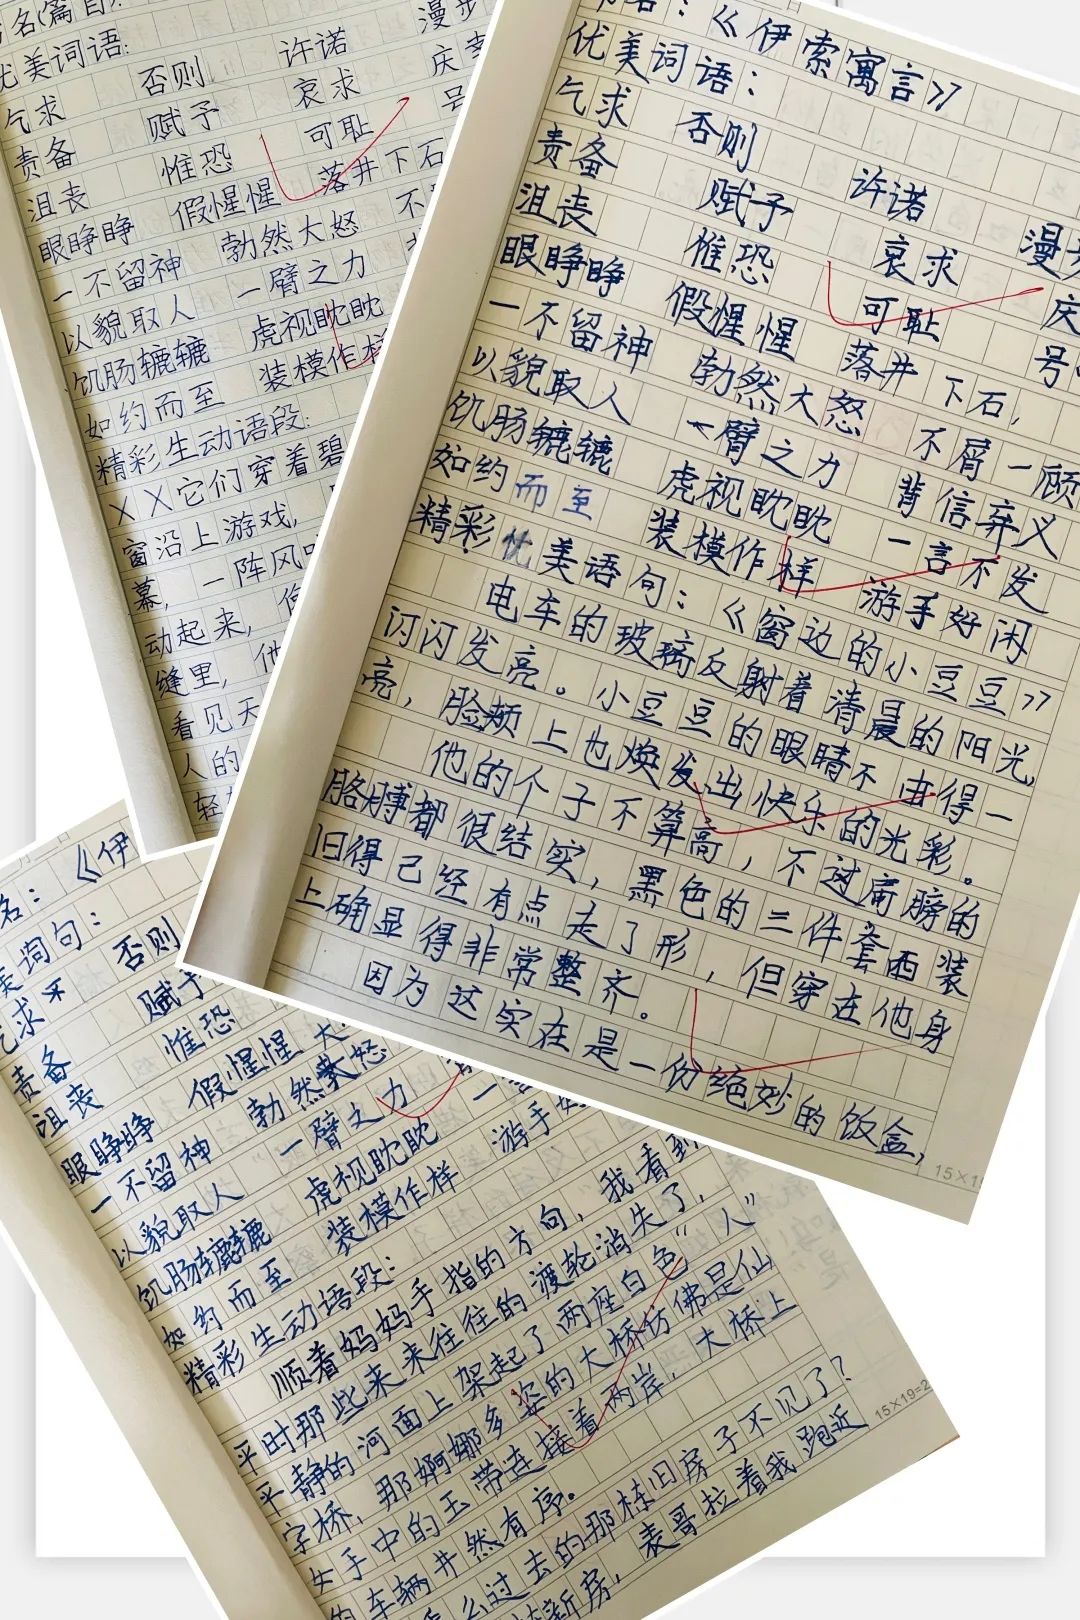 名(篇目)
优美词语:
乞求 否则 许诺 漫步
责备 赋予 哀求 庆幸
沮丧 惟恐 可耻 号
眼睁睁 假惺惺 落井下石
一不留神 勃然大怒 不
以貌取人 一臂之力
饥肠辘辘 虎视眈眈
如约而至 装模作样
精彩生动语段:
××它们穿着碧
窗沿上游戏,
幕,一阵风
动起来,
缝里,他
看见天
人的
轻
名:《伊索寓言》
优美词语:
乞求 否则 许诺 漫步
责备 赋予 哀求 庆
沮丧 惟恐 可耻 号
眼睁睁 假惺惺 落井下石,
一不留神 勃然大怒 不屑一顾
以貌取人 一臂之力 背信弃义
饥肠辘辘 虎视眈眈 一言不发
如约而至 装模作样 游手好闲
精彩优美语句:《窗边的小豆豆》
电车的玻璃反射着清晨的阳光,
闪闪发亮。小豆豆的眼睛不由得一
亮,脸颊上也焕发出快乐的光彩。
他的个子不算高,不过肩膀的
胳膊都很结实,黑色的三件套西装
旧得已经有点走了形,但穿在他身
上确显得非常整齐。
因为这实在是一份绝妙的饭盒,
15×1
名:《伊
美词句:
乞求 否则
责备 赋予
沮丧 惟恐
眼睁睁 假惺惺 大
一不留神 勃然大怒
以貌取人 一臂之力
饥肠辘辘 虎视眈眈
如约而至 装模作样 游手好
精彩生动语段:
顺着妈妈手指的方向,我看到
平时那些来来往往的渡轮消失了,
平静的河面上架起了两座白色“人”
字桥,那婀娜多姿的大桥仿佛是仙
女手中的玉带连接着两岸,大桥上
的车辆井然有序。
怎么过去的那栋旧房子不见了?
表哥拉着我跑近
新房,
15×19=2